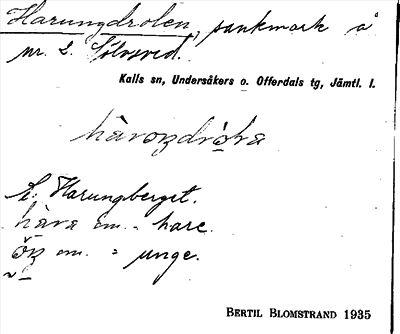 Harungdrolen, sankmark å
nr. 2. Sölvsved.
Kalls sn, Undersåkers o. Offerdals tg, Jämtl. l.
hàrondróḷa
L: Harungberget.
hàra em. = hare.
öṇ em. = unge.
BERTIL BLOMSTRAND 1935